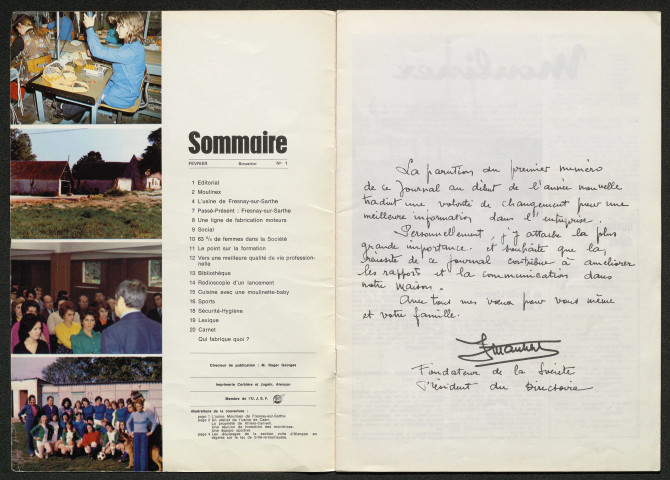 Sommaire
FEVRIER Bimestriel N° 1
1 Editorial
2 Moulinex
4 L'usine de Fresnay-sur-Sarthe
7 Passé-Présent : Fresnay-sur-Sarthe
8 Une ligne de fabrication moteurs
9 Social
10 63 % de femmes dans la Société
11 Le point sur la formation
12 Vers une meilleure qualité de vie profession-
nelle
13 Bibliothèque
14 Radioscopie d'un lancement
15 Cuisine avec une moulinette-baby
16 Sports
18 Sécurité-Hygiène
19 Lexique
20 Carnet
Qui fabrique quoi ?
Directeur de publication : M. Roger Georges
Imprimerie Corbière et Jugain, Alençon
Membre de l'U.J.E.F.
Illustrations de la couverture :
page 1 L'usine Moulinex de Fresnay-sur-Sarthe
page 2 Un atelier de l'usine de Caen.
La propriété de Villers-Canivet.
Une réunion de formation des monitrices.
Une équipe sportive
page 4 Les équipages de la section voile d'Alençon en
régates sur le lac de Sillé-le-Guillaume.
Moulinex
La parution du premier numéro
de ce Journal au début de l'année nouvelle
traduit une volonté de changement pour une
meilleure information dans l'entreprise.
Personnellement, j'y attache la plus
grande importance et souhaite que la
réussite de ce journal contribue à améliorer
les rapports et la communication dans
notre Maison.
Avec tous mes vœux pour vous même
et votre famille.
Fondateur de la Société
Président du Directoire